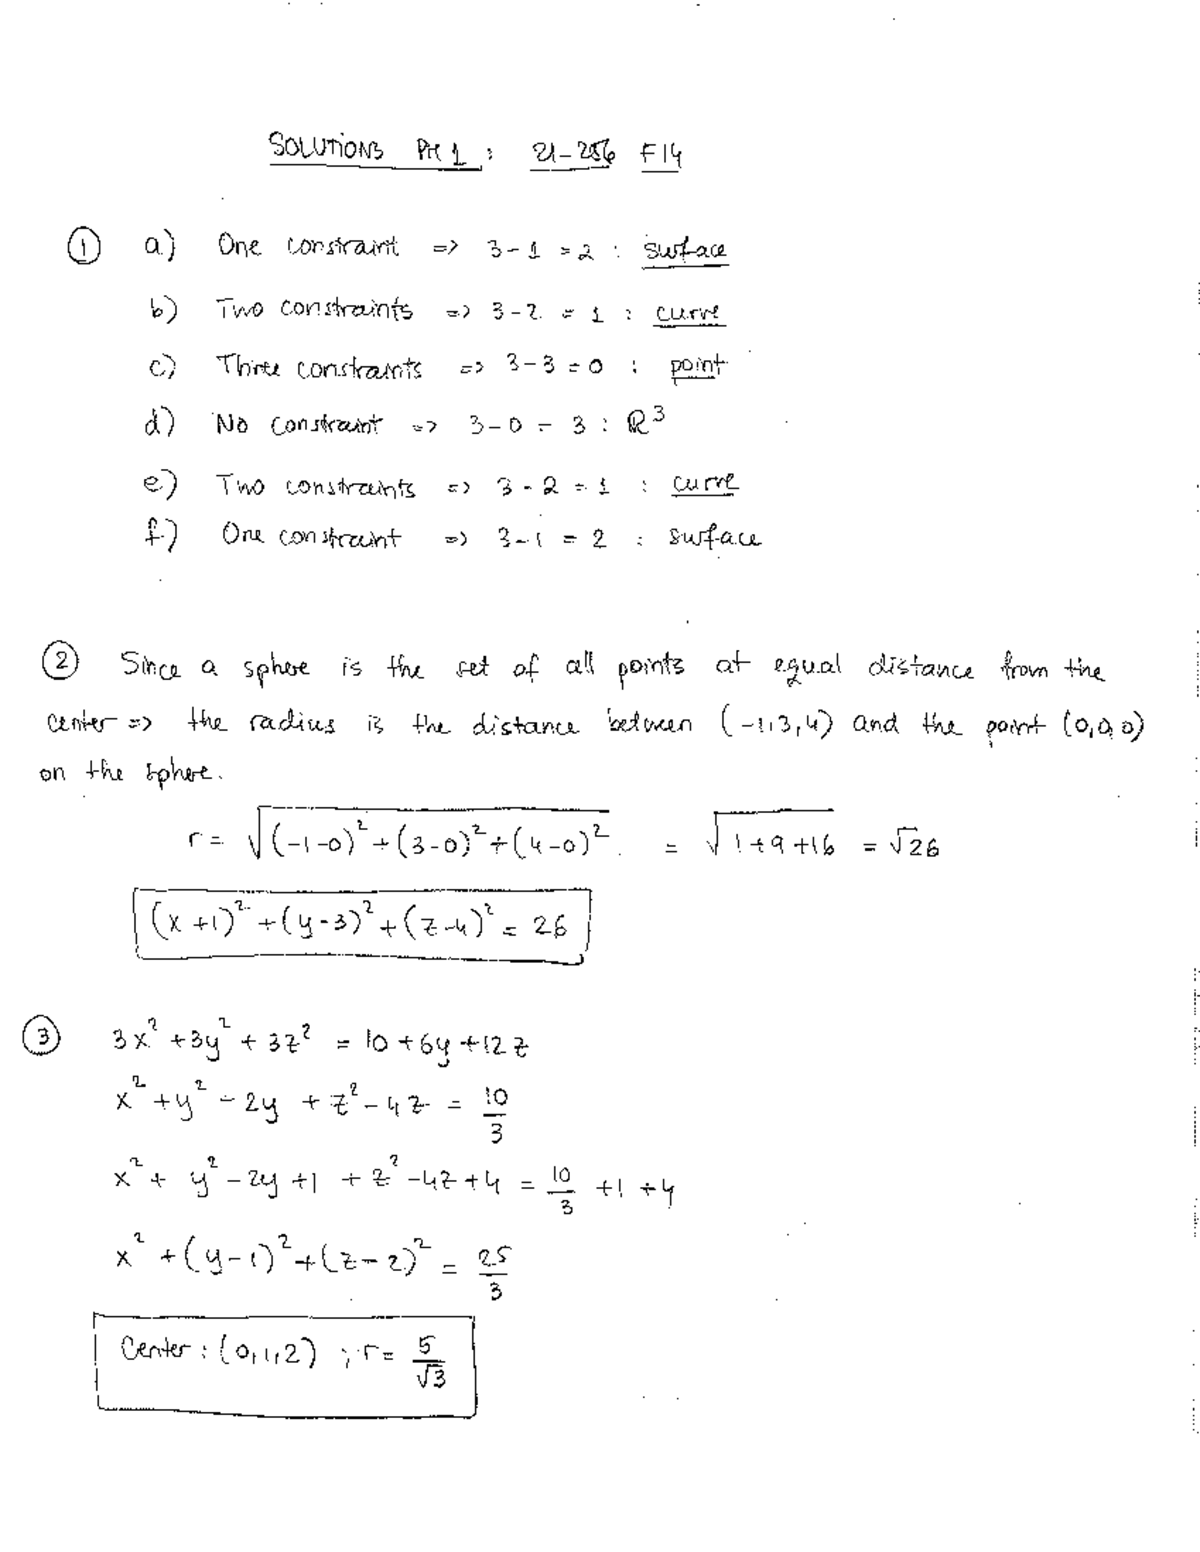 SOLUTIONS PH 1 : 21-256 F14
① a) One constraint => 3-1 = 2 : surface
b) Two constraints => 3-2 = 1 : curve
c) Three constraints => 3-3 = 0 : point
d) No constraint => 3-0 = 3 : ℝ³
e) Two constraints => 3-2 = 1 : curve
f) One constraint => 3-1 = 2 : surface
② Since a sphere is the set of all points at equal distance from the
center => the radius is the distance between (-1,3,4) and the point (0,0,0)
on the sphere.
r = √((-1-0)² + (3-0)² + (4-0)²) = √(1+9+16) = √26
(x+1)² + (y-3)² + (z-4)² = 26
③ 3x² + 3y² + 3z² = 10 + 6y + 12z
x² + y² - 2y + z² - 4z = 10/3
x² + y² - 2y + 1 + z² - 4z + 4 = 10/3 + 1 + 4
x² + (y-1)² + (z-2)² = 25/3
Center : (0,1,2) ; r = 5/√3